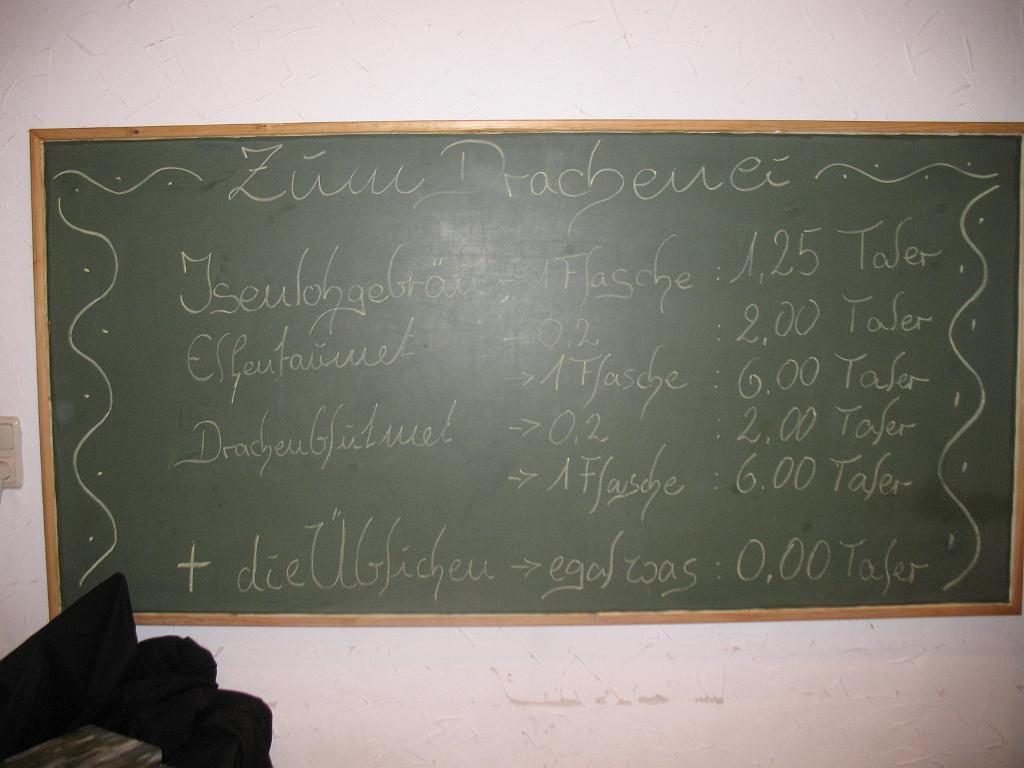 Zum Drachenei
Isenlohgebräu -> 1 Flasche : 1,25 Taler
Elfentaumet -> 0,2 : 2,00 Taler
-> 1 Flasche : 6.00 Taler
Drachenblutmet -> 0,2 : 2.00 Taler
-> 1 Flasche : 6.00 Taler
+ die Üblichen -> egal was : 0,00 Taler